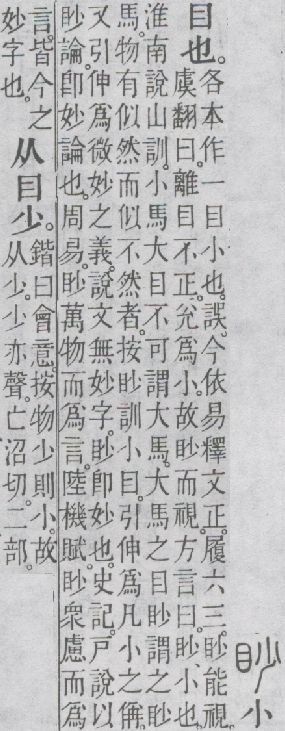 眇小
目也。各本作一目小也。誤。今依易釋文正。履六三。眇能視。
虞翻曰。離目不正。兌爲小。故眇而視。方言曰。眇、小也。
淮南說山訓。小馬大目不可謂大馬。大馬之目眇謂之眇
馬。物有似然而似不然者。按眇訓小目。引伸爲凡小之偁。
又引伸爲微妙之義。說文無妙字。眇卽妙也。史記。戶說以
眇論。卽妙論也。周易。眇萬物而爲言。陸機賦。眇衆慮而爲
言。皆今之
妙字也。
从目少。
鍇曰會意。按物少則小。故
从少。少亦聲。亡沼切。二部。